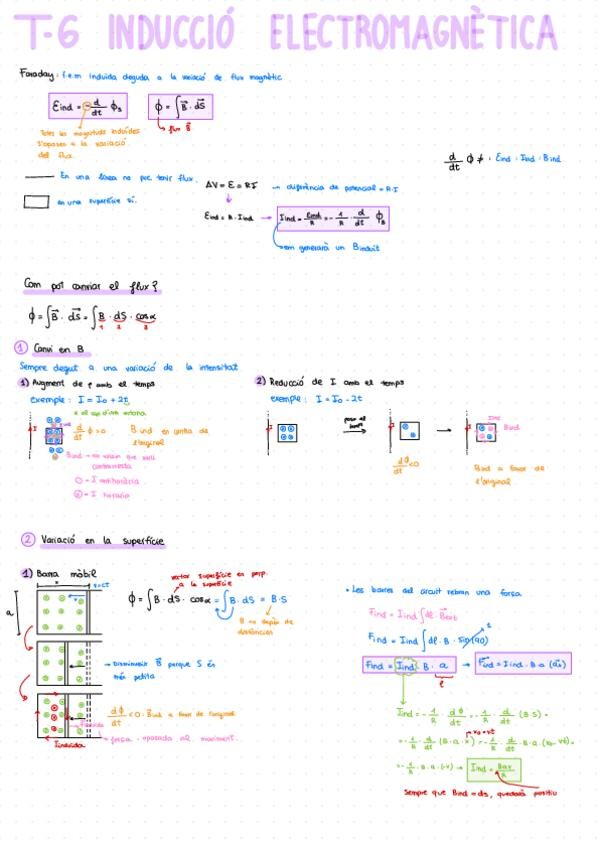 T-6 INDUCCIÓ ELECTROMAGNÈTICA
Faraday: f.e.m induida deguda a la variació de flux magnètic
Eind = - d/dt ϕs
ϕ = ∫ B⃗ · dS⃗
→ flux B⃗
Totes les magnituds induïdes
s'oposen a la variació
del flux.
En una línea no poc tenir flux.
en una superfície sí.
ΔV = E = RI → diferència de potencial = R·I
Eind = R · Iind → Iind = Eind/R = - 1/R · d/dt ϕB
em generarà un Binduït
d/dt ϕ ≠ · Eind · Iind · Bind
Com pot canviar el flux?
ϕ = ∫ B⃗ · dS⃗ = ∫ B · dS · cosα
1 2 3
① Canvi en B
Sempre degut a una variació de la intensitat
1) Augment de I amb el temps
exemple: I = I0 + 2t
d/dt ϕ > 0
B ind en contra de
l'original
contraresta
⊙ = I antihorària
⊗ = I horària
2) Reducció de I amb el temps
exemple: I = I0 - 2t
passa el
temps
dϕ/dt < 0
Iind
Bind
Bind a favor de
l'original
② Variació en la superfície
1) Barra mòbil
x
v=ct
a
vector superfície en perp.
a la superfície
ϕ = ∫ B · dS · cosα = ∫ B · dS = B·S
B no depèn de
distàncies
→ Disminueix B⃗ perquè S és
més petita
dϕ/dt < 0 · Bind a favor de l'original
Finduida
→ força oposada al moviment.
Iinduida
• Les barres del circuit rebran una força
Find = Iind ∫ dl · B⃗ext
Find = Iind ∫ dl · B · sin(90)
1
Find = Iind · B · a → F⃗ind = Iind · B·a (u⃗s)
l
Iind = - 1/R · dϕ/dt = - 1/R · d/dt (B·S) =
x0 - vt
= - 1/R · d/dt (B·a·x) = - 1/R · d/dt · B·a·(x0 - vt) =
= - 1/R · B·a·(-v) → Iind = Bav/R
Sempre que Bind = ds, quedarà positiu